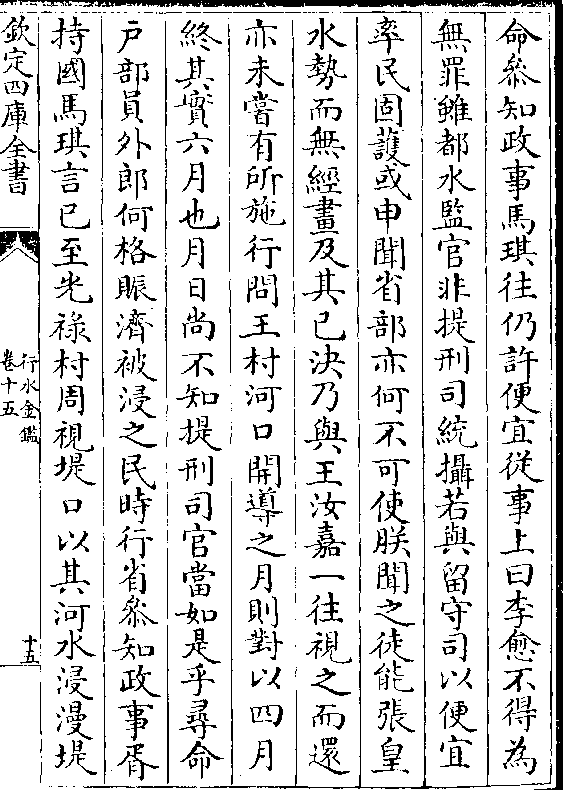 命叅知政事馬琪往仍許便宜従事上曰李愈不得為
無罪雖都水監官非提刑司統攝若與留守司以便宜
率民固護或申聞省部亦何不可使朕聞之徒能張皇
水勢而無經畫及其已決乃與王汝嘉一往視之而還
亦未嘗有所施行問王村河口開導之月則對以四月
終其實六月也月日尚不知提刑司官當如是乎尋命
户部員外郎何格賑濟被浸之民時行省叅知政事胥
持國馬琪言已至光祿村周視堤口以其河水浸漫堤
欽定四庫全書
行水金鑑
卷十五
十五